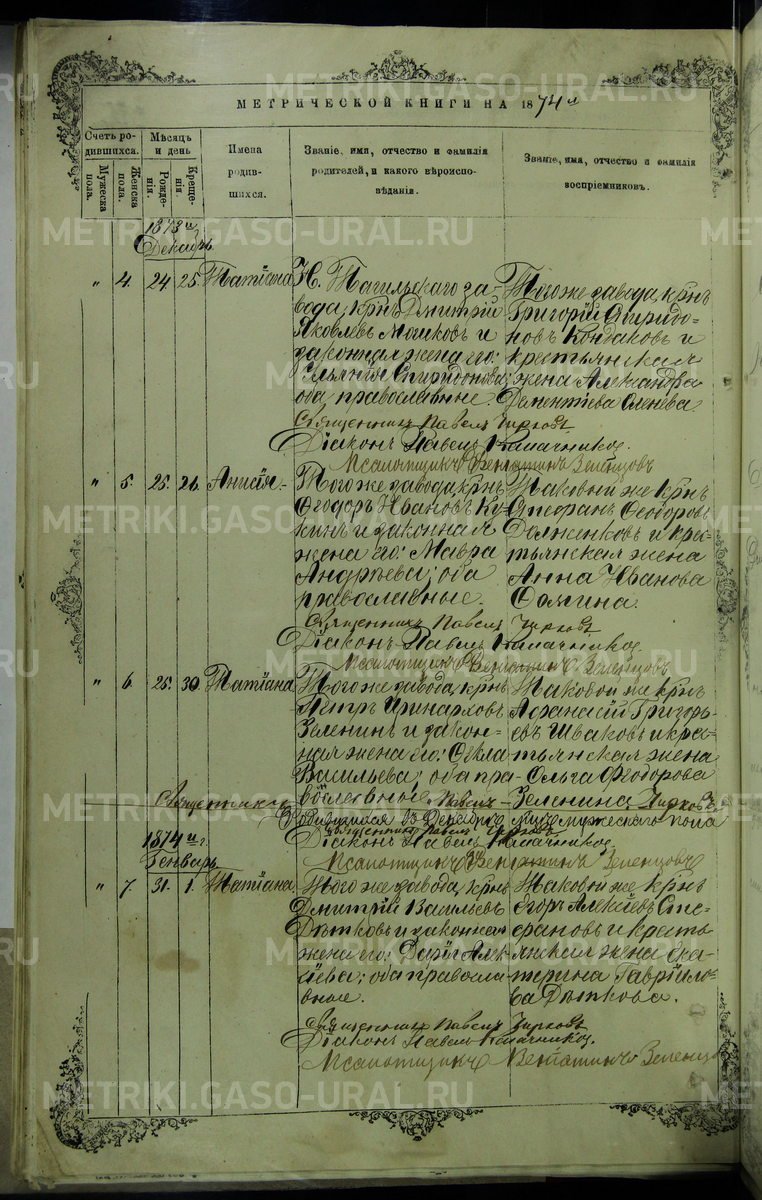 МЕТРИЧЕСКОЙ КНИГИ НА 1874 й
Счетъ родившихся.
Мужеска пола.
Женска пола.
Мѣсяцъ и день
Рожденія.
Крещенія.
Имена родившихся.
Званіе, имя, отчество и фамилія родителей, и какого вѣроисповѣданія.
Званіе, имя, отчество и фамилія воспріемниковъ.
1873 й
Декабрь
" 4. 24 25. Татіана
Н. Тагильскаго за-
вода, крнъ Дмитрій
Яковлевъ и
законная жена его:
Спиридонова;
оба православные.
Тогоже завода, крнъ
Григорій Спиридо-
новъ Кондаковъ и
крестьянская
жена Александра
Дементьева
Священникъ Павелъ
Діаконъ Павелъ
Псаломщикъ Веніаминъ Зеленцовъ
" 5. 25. 26. Анисія.
Тогоже завода крнъ
Ѳеодоръ Ивановъ
и законная
жена его: Мавра
Андреева; оба
православные.
Таковый же крнъ
Стефанъ Ѳеодоровъ
Долженковъ и кре-
стьянская жена
Анна Иванова
Ѳомина.
Священникъ Павелъ
Діаконъ Павелъ
Псаломщикъ Веніаминъ Зеленцовъ
" 6. 25. 30. Татіана
Тогоже завода, крнъ
Петръ Иринарховъ
Зеленинъ и закон-
ная жена его: Ѳекла
Васильева; оба пра-
вославные
Таковой же крнъ
Аѳанасій Григорь-
евъ Шваковъ и кре-
стьянская жена
Ольга Ѳеодорова
Зеленина
Священникъ Павелъ
Родившихся въ Декабрѣ мужескаго пола
Священникъ Павелъ
Діаконъ Павелъ
1874 й г.
Генварь
Псаломщикъ Веніаминъ Зеленцовъ
" 7. 31. 1. Татіана
Тогоже завода, крнъ
Дмитрій Васильевъ
Дѣтковъ и законная
жена его: Дарія Алек-
сіева; оба правосла-
вные.
Таковый же крнъ
Егоръ Алексіевъ Сте-
фановъ и кресть-
янская жена Ека-
терина Гаврило-
ва Дѣткова.
Священникъ Павелъ
Діаконъ Павелъ
Псаломщикъ Веніаминъ
METRIKI.GASO-URAL.RU